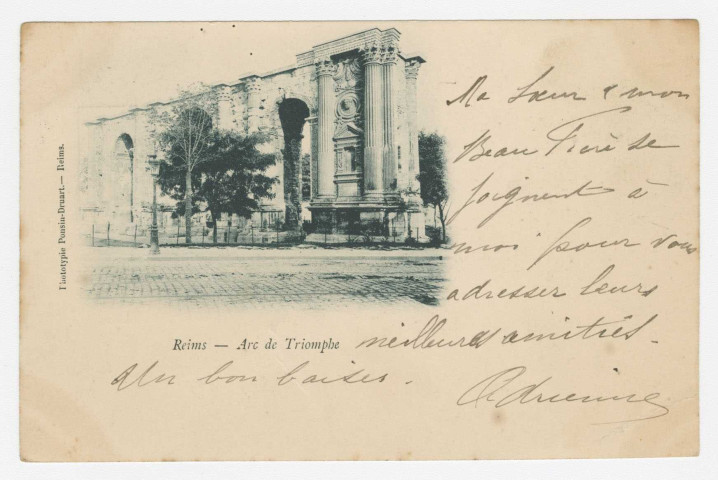 Ma Sœur & mon
Beau Frère se
joignent à
moi pour vous
adresser leurs
meilleures amitiés.
Un bon baiser.
Adrienne
Reims — Arc de Triomphe
Phototypie Ponsin-Druart. — Reims.